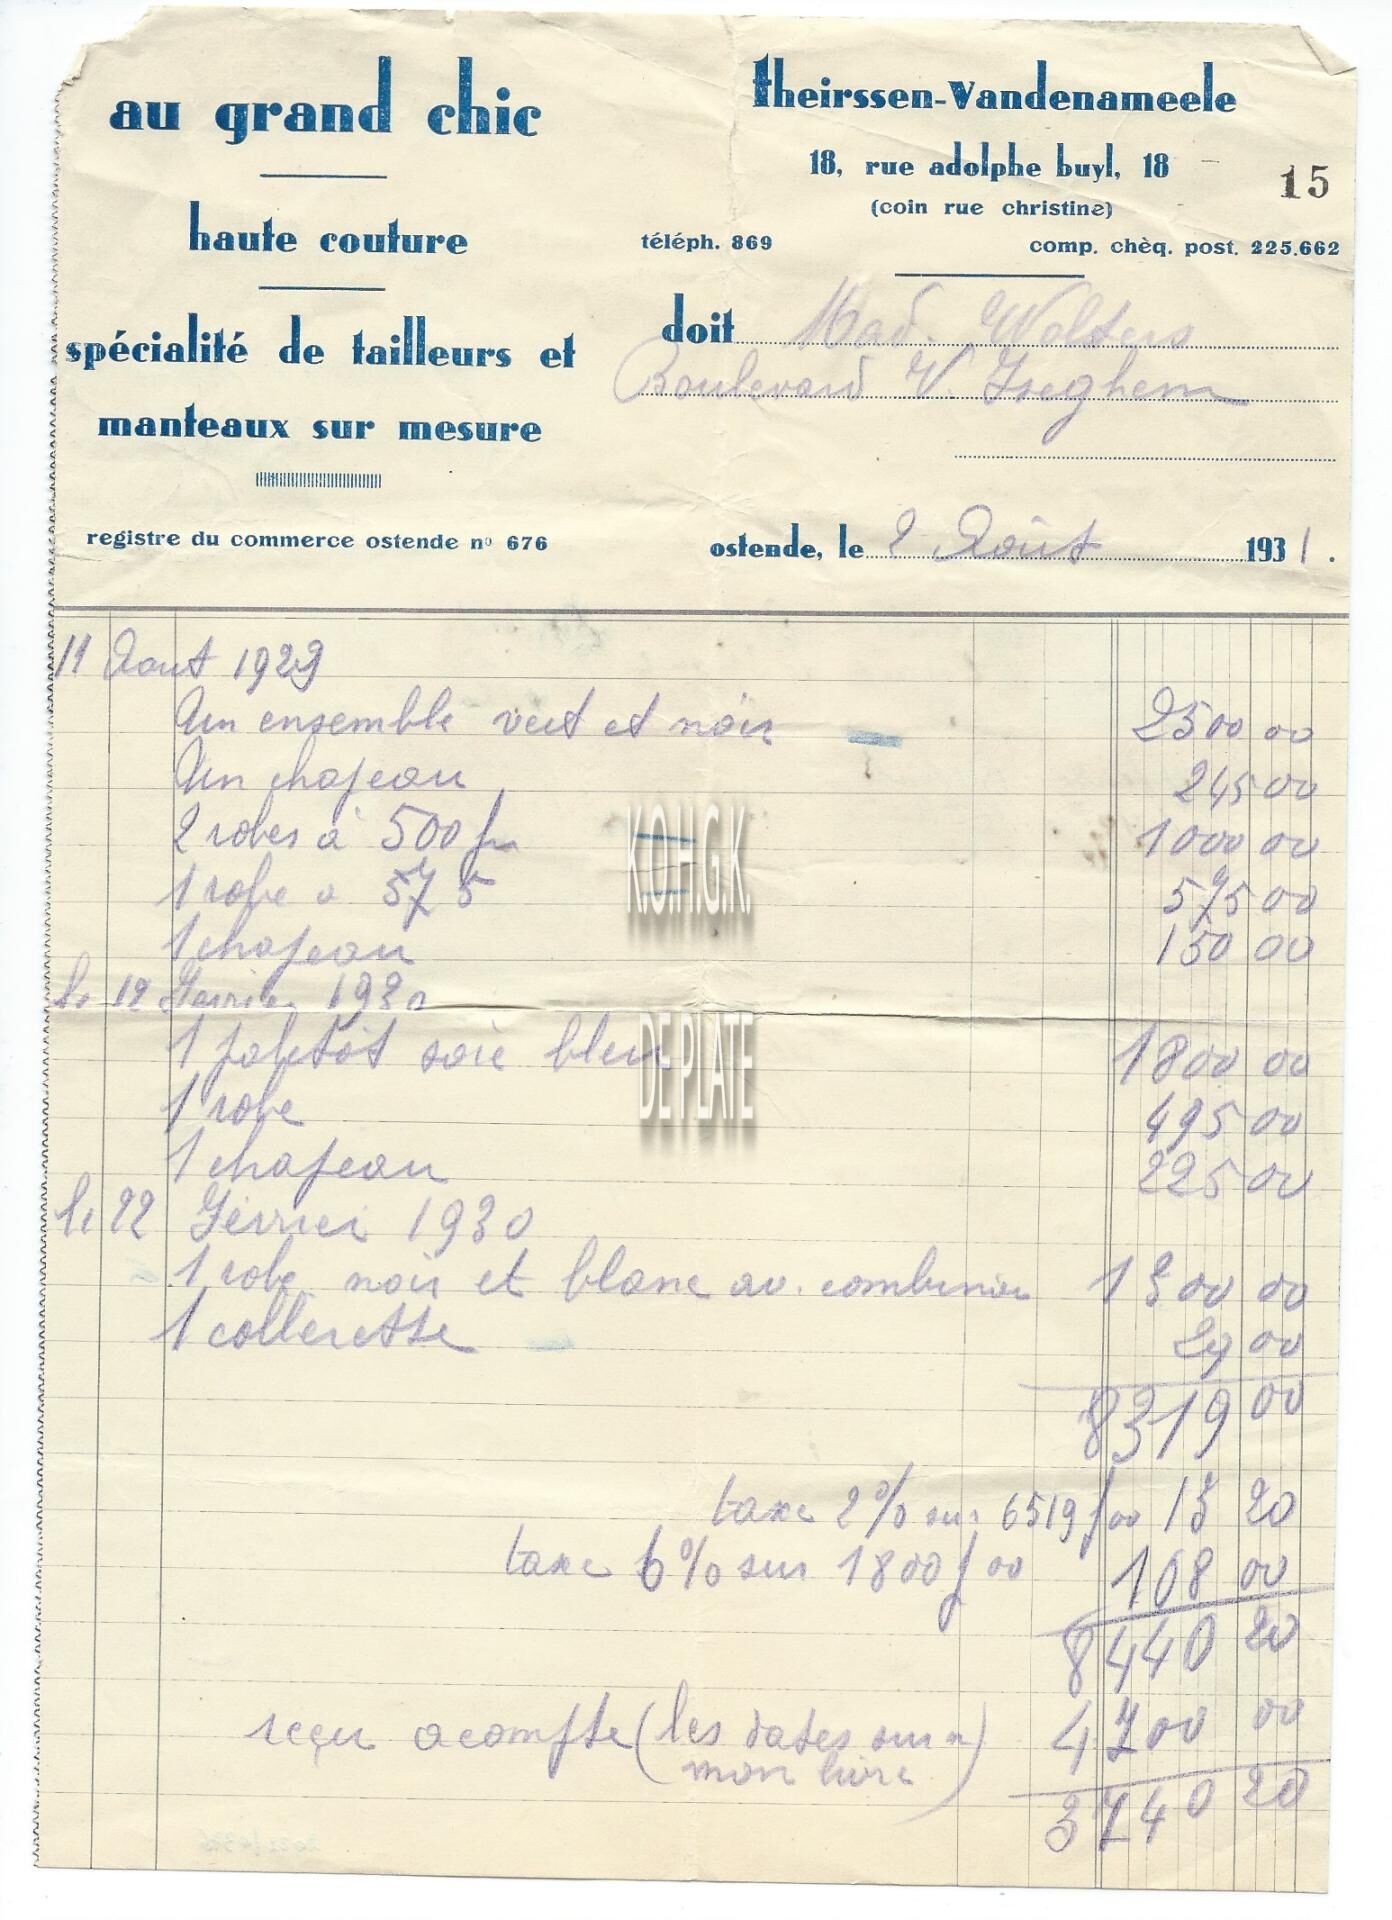 au grand chic
haute couture
spécialité de tailleurs et
manteaux sur mesure
registre du commerce ostende nº 676
theirssen-vandenameele
18, rue adolphe buyl, 18
15
(coin rue christine)
téléph. 869 comp. chèq. post. 225.662
doit Mad. Wolters
Boulevard V. Iseghem
ostende, le 2 Août 1931.
11 Aout 1929
Un ensemble vert et noir 2500 00
Un chapeau 245 00
2 robes à 500 fr 1000 00
1 robe a 575 575 00
1 chapeau 150 00
K.O.H.G.K.
le 12 Fevrier 1930
1 paletôt soie bleu 1800 00
DE PLATE
1 robe 495 00
1 chapeau 225 00
le 22 Février 1930
1 robe noir et blanc av. 1300 00
1 collerette 29 00
8319 00
taxe 2% sur 6519 f 00 13 20
taxe 6% sur 1800 f 00 108 00
8440 20
reçu acompte (les dates sur 4700 00
mon livre)
3740 20